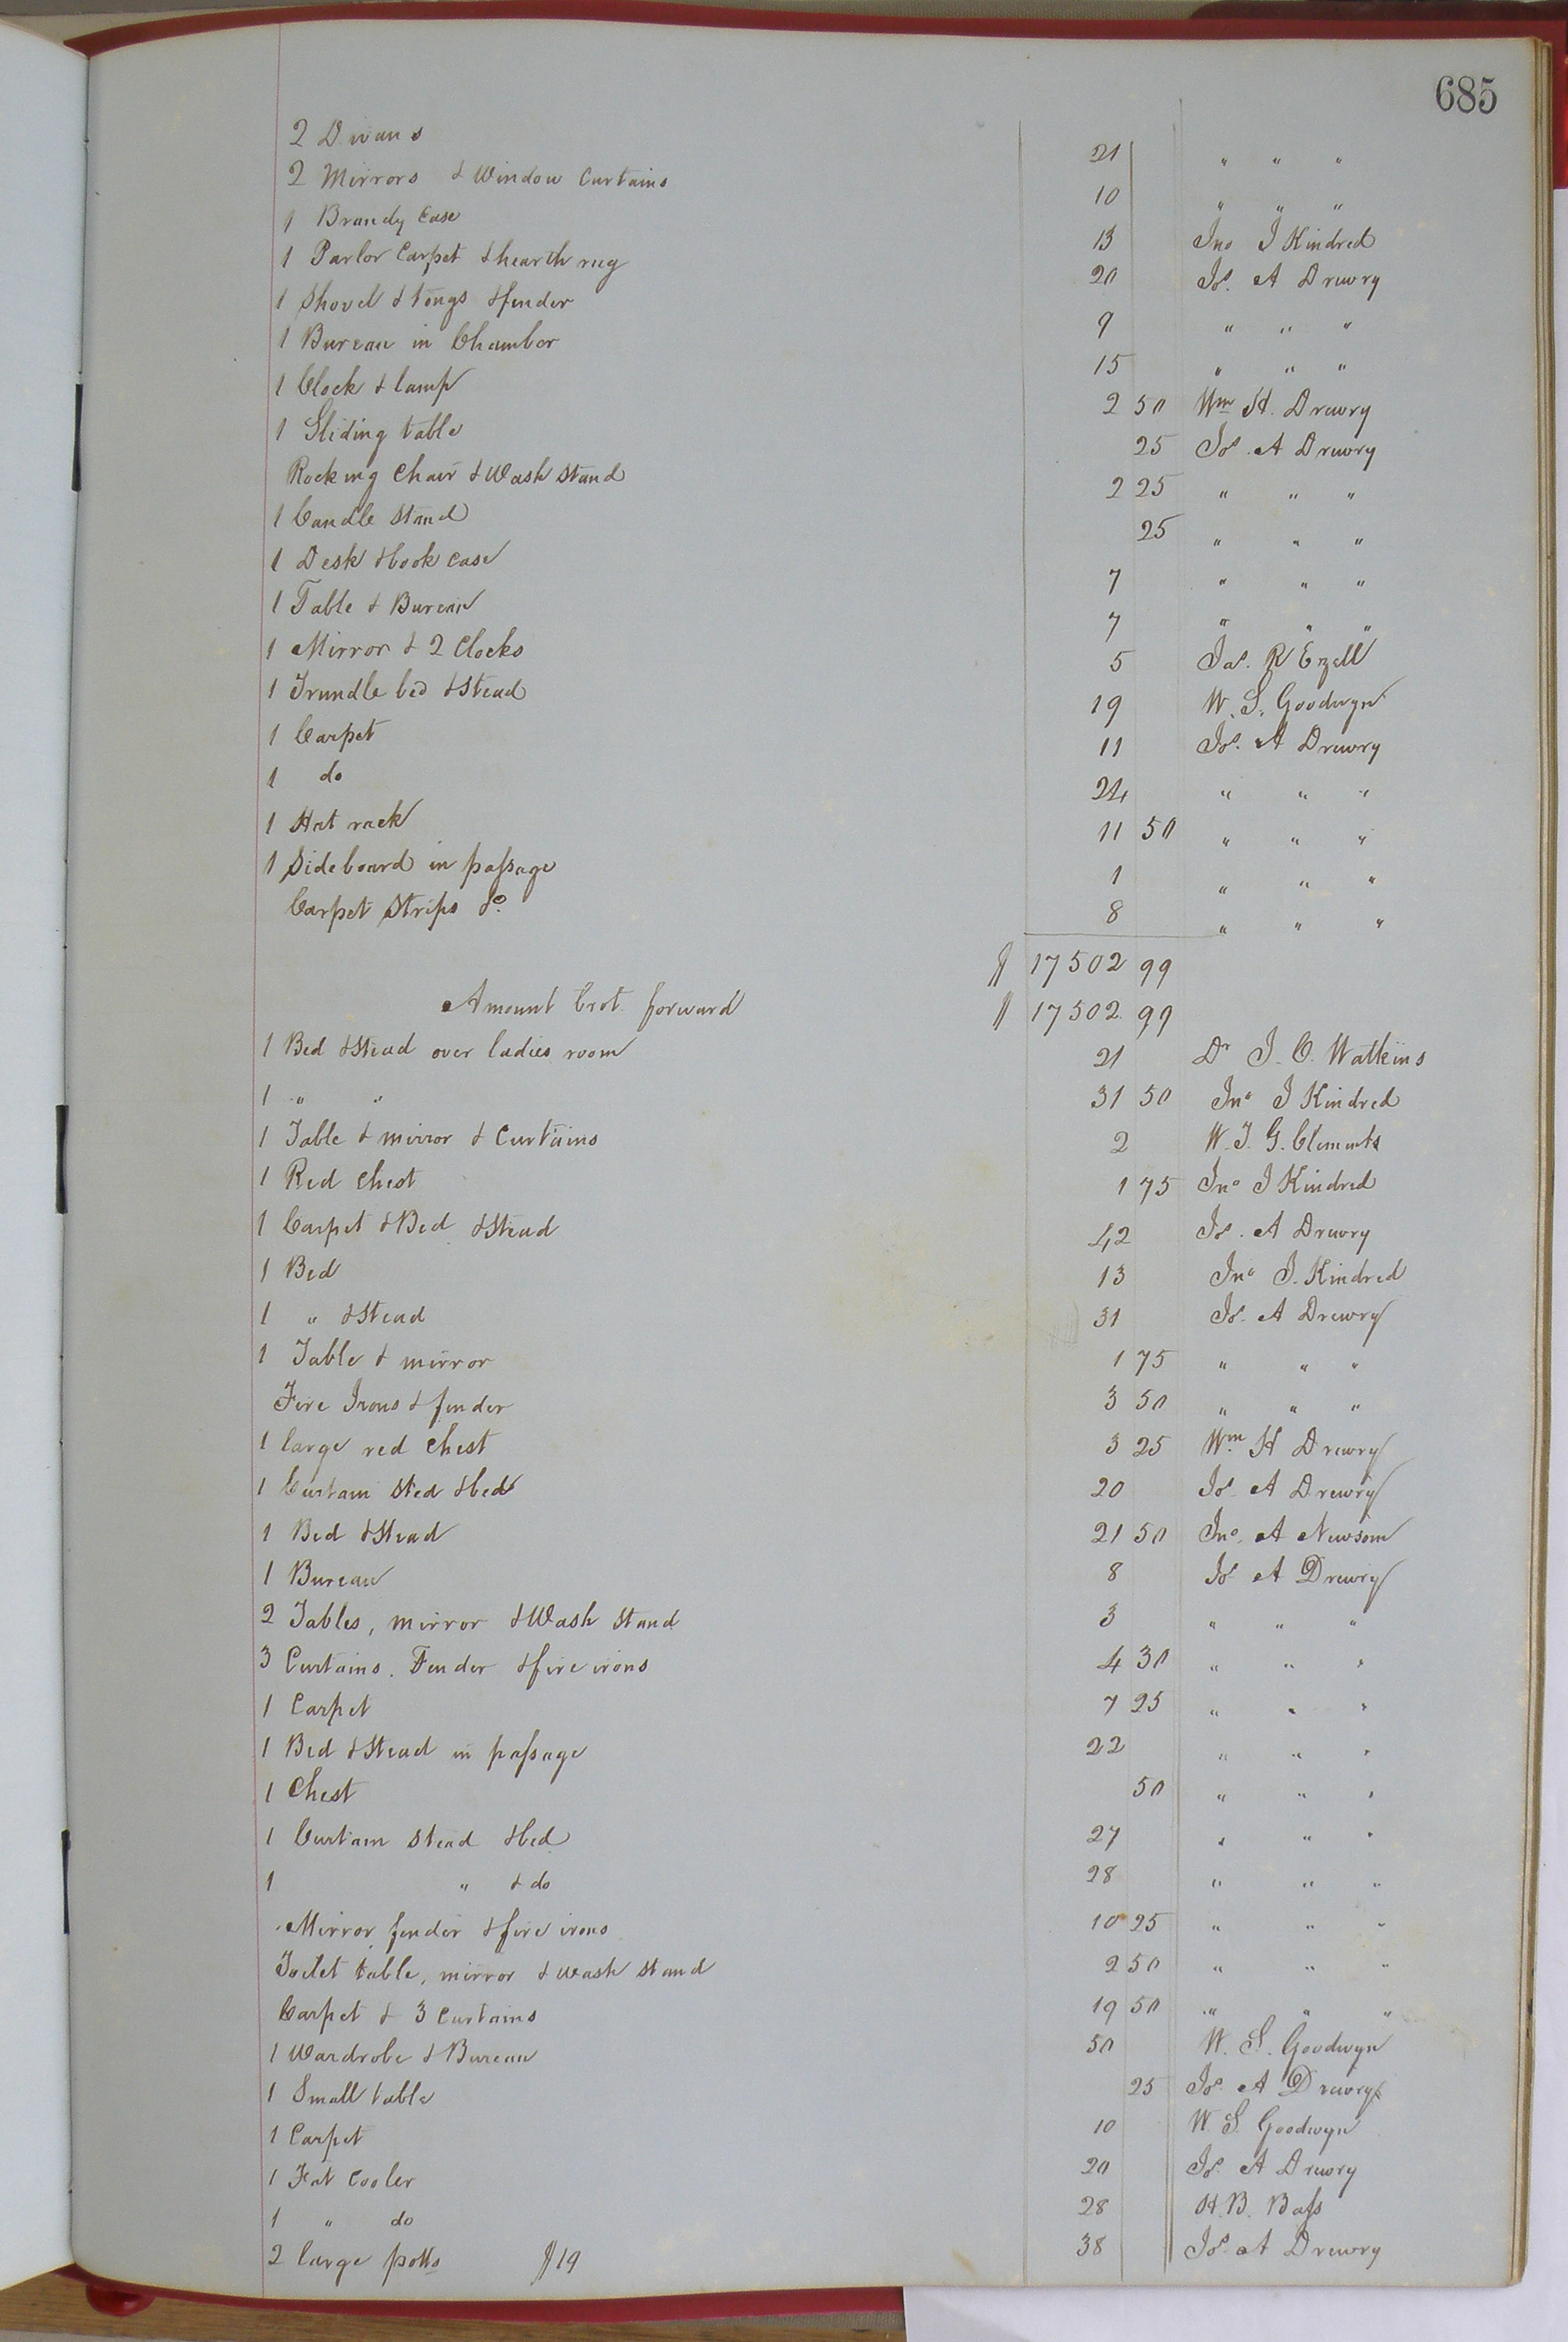 685
2 Divans 21 " " "
2 Mirrors & Window Curtains 10 " " "
1 Brandy Case 13 Jno J Kindred
1 Parlor Carpet & hearth rug 20 Jos. A Drewry
1 Shovel & tongs & fender 9 " " "
1 Bureau in Chamber 15 " " "
1 Clock & lamp 2 50 Wm H. Drewry
1 Sliding table 25 Jos. A Drewry
Rocking Chair & Wash Stand 2 25 " " "
1 Candle Stand 25 " " "
1 Desk & book case 7 " " "
1 Table & Bureau 7 " " "
1 Mirror & 2 Clocks 5 Jas. R Ezell
1 Trundle bed & Stead 19 W. S. Goodwyn
1 Carpet 11 Jos. A Drewry
1 do 24 " " "
1 Hat rack 11 50 " " "
1 Sideboard in passage 1 " " "
Carpet Strips &c. 8 " " "
$ 17502 99
Amount brot. forward $ 17502 99
1 Bed & Stead over ladies room 21 Dr J. C. Watkins
1 " " 31 50 Jno J Kindred
1 Table & mirror & Curtains 2 W. J. G. Clements
1 Red Chest 1 75 Jno J Kindred
1 Carpet & Bed & Stead 42 Jos. A Drewry
1 Bed 13 Jno J. Kindred
1 " & Stead 31 Jos. A Drewry
1 Table & mirror 1 75 " " "
Fire Irons & fender 3 50 " " "
1 large red Chest 3 25 Wm H Drewry
1 Curtain Sted & bed 20 Jos. A Drewry
1 Bed & Stead 21 50 Jno. A Newsom
1 Bureau 8 Jos A Drewry
2 Tables, mirror & Wash Stand 3 " " "
3 Curtains. Fender & fire irons 4 30 " " "
1 Carpet 7 25 " " "
1 Bed & Stead in passage 22 " " "
1 Chest 50 " " "
1 Curtain Stead & bed 27 " " "
1 " & do 28 " " "
Mirror fender & fire irons 10 25 " " "
Toilet table, mirror & wash stand 2 50 " " "
Carpet & 3 Curtains 19 50 " " "
1 Wardrobe & Bureau 50 W. S. Goodwyn
1 Small table 25 Jos. A Drewry
1 Carpet 10 W. S. Goodwyn
1 Fat Cooler 20 Jos. A Drewry
1 " do 28 H. B. Bass
2 large potts $19 38 Jos. A Drewry